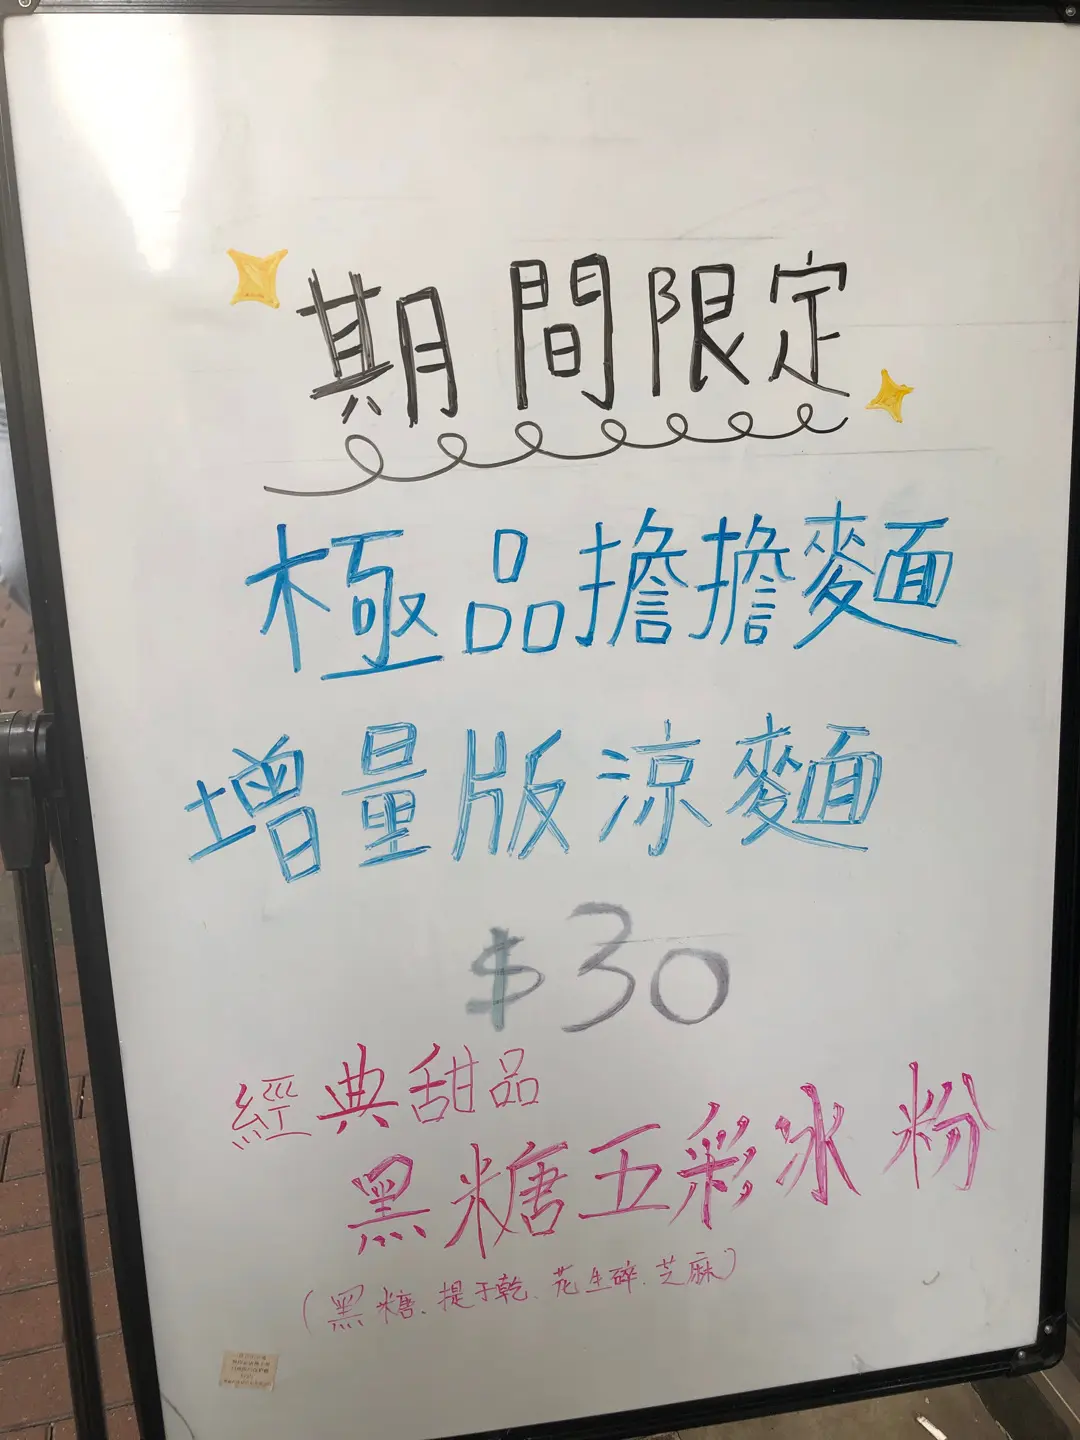 期間限定
極品擔擔麵
增量版涼麵
$30
經典甜品
黑糖五彩冰粉
(黑糖、提子乾、花生碎、芝麻)